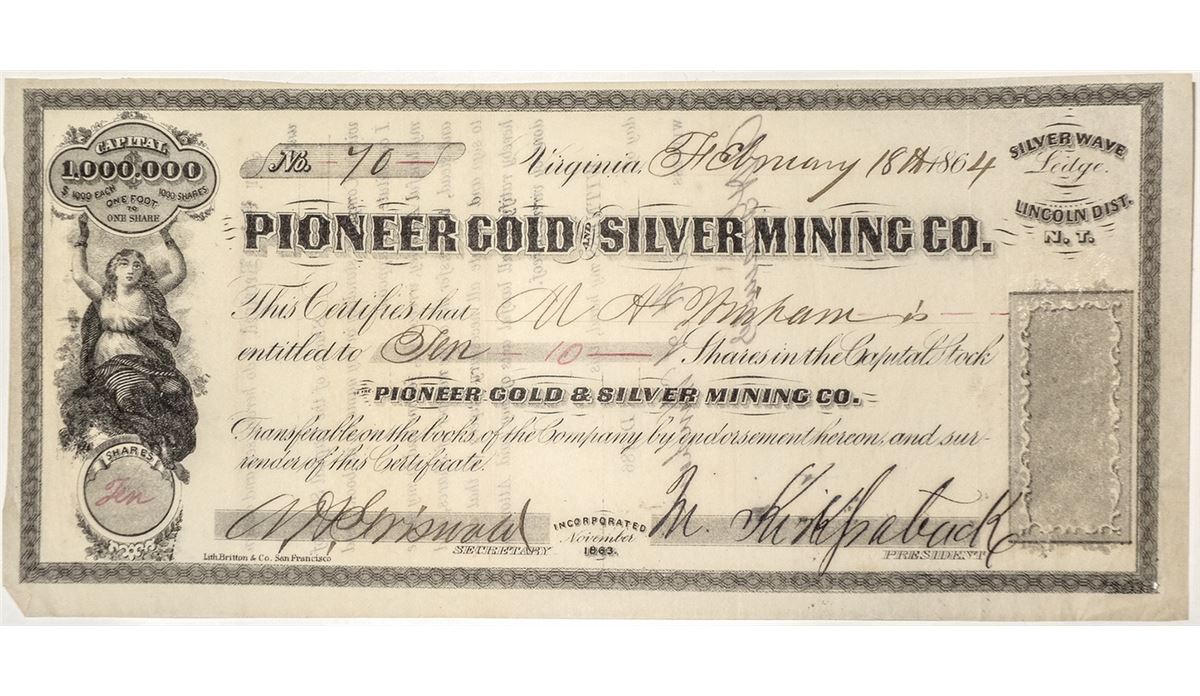 CAPITAL
1,000,000
$ 1000 EACH 1000 SHARES
ONE FOOT
TO
ONE SHARE
No. 70
Virginia, February 18th 1864
SILVER WAVE
Ledge.
LINCOLN DIST.
N. T.
PIONEER GOLD AND SILVER MINING CO.
This Certifies that M A is
entitled to Ten 10 Shares in the Capital Stock
OF THE PIONEER GOLD & SILVER MINING CO.
Transferable on the books of the Company by endorsement hereon, and sur-
render of this Certificate.
SHARES
Ten
Griswold
SECRETARY
INCORPORATED
November
1863.
M.
PRESIDENT
Lith. Britton & Co. San Francisco